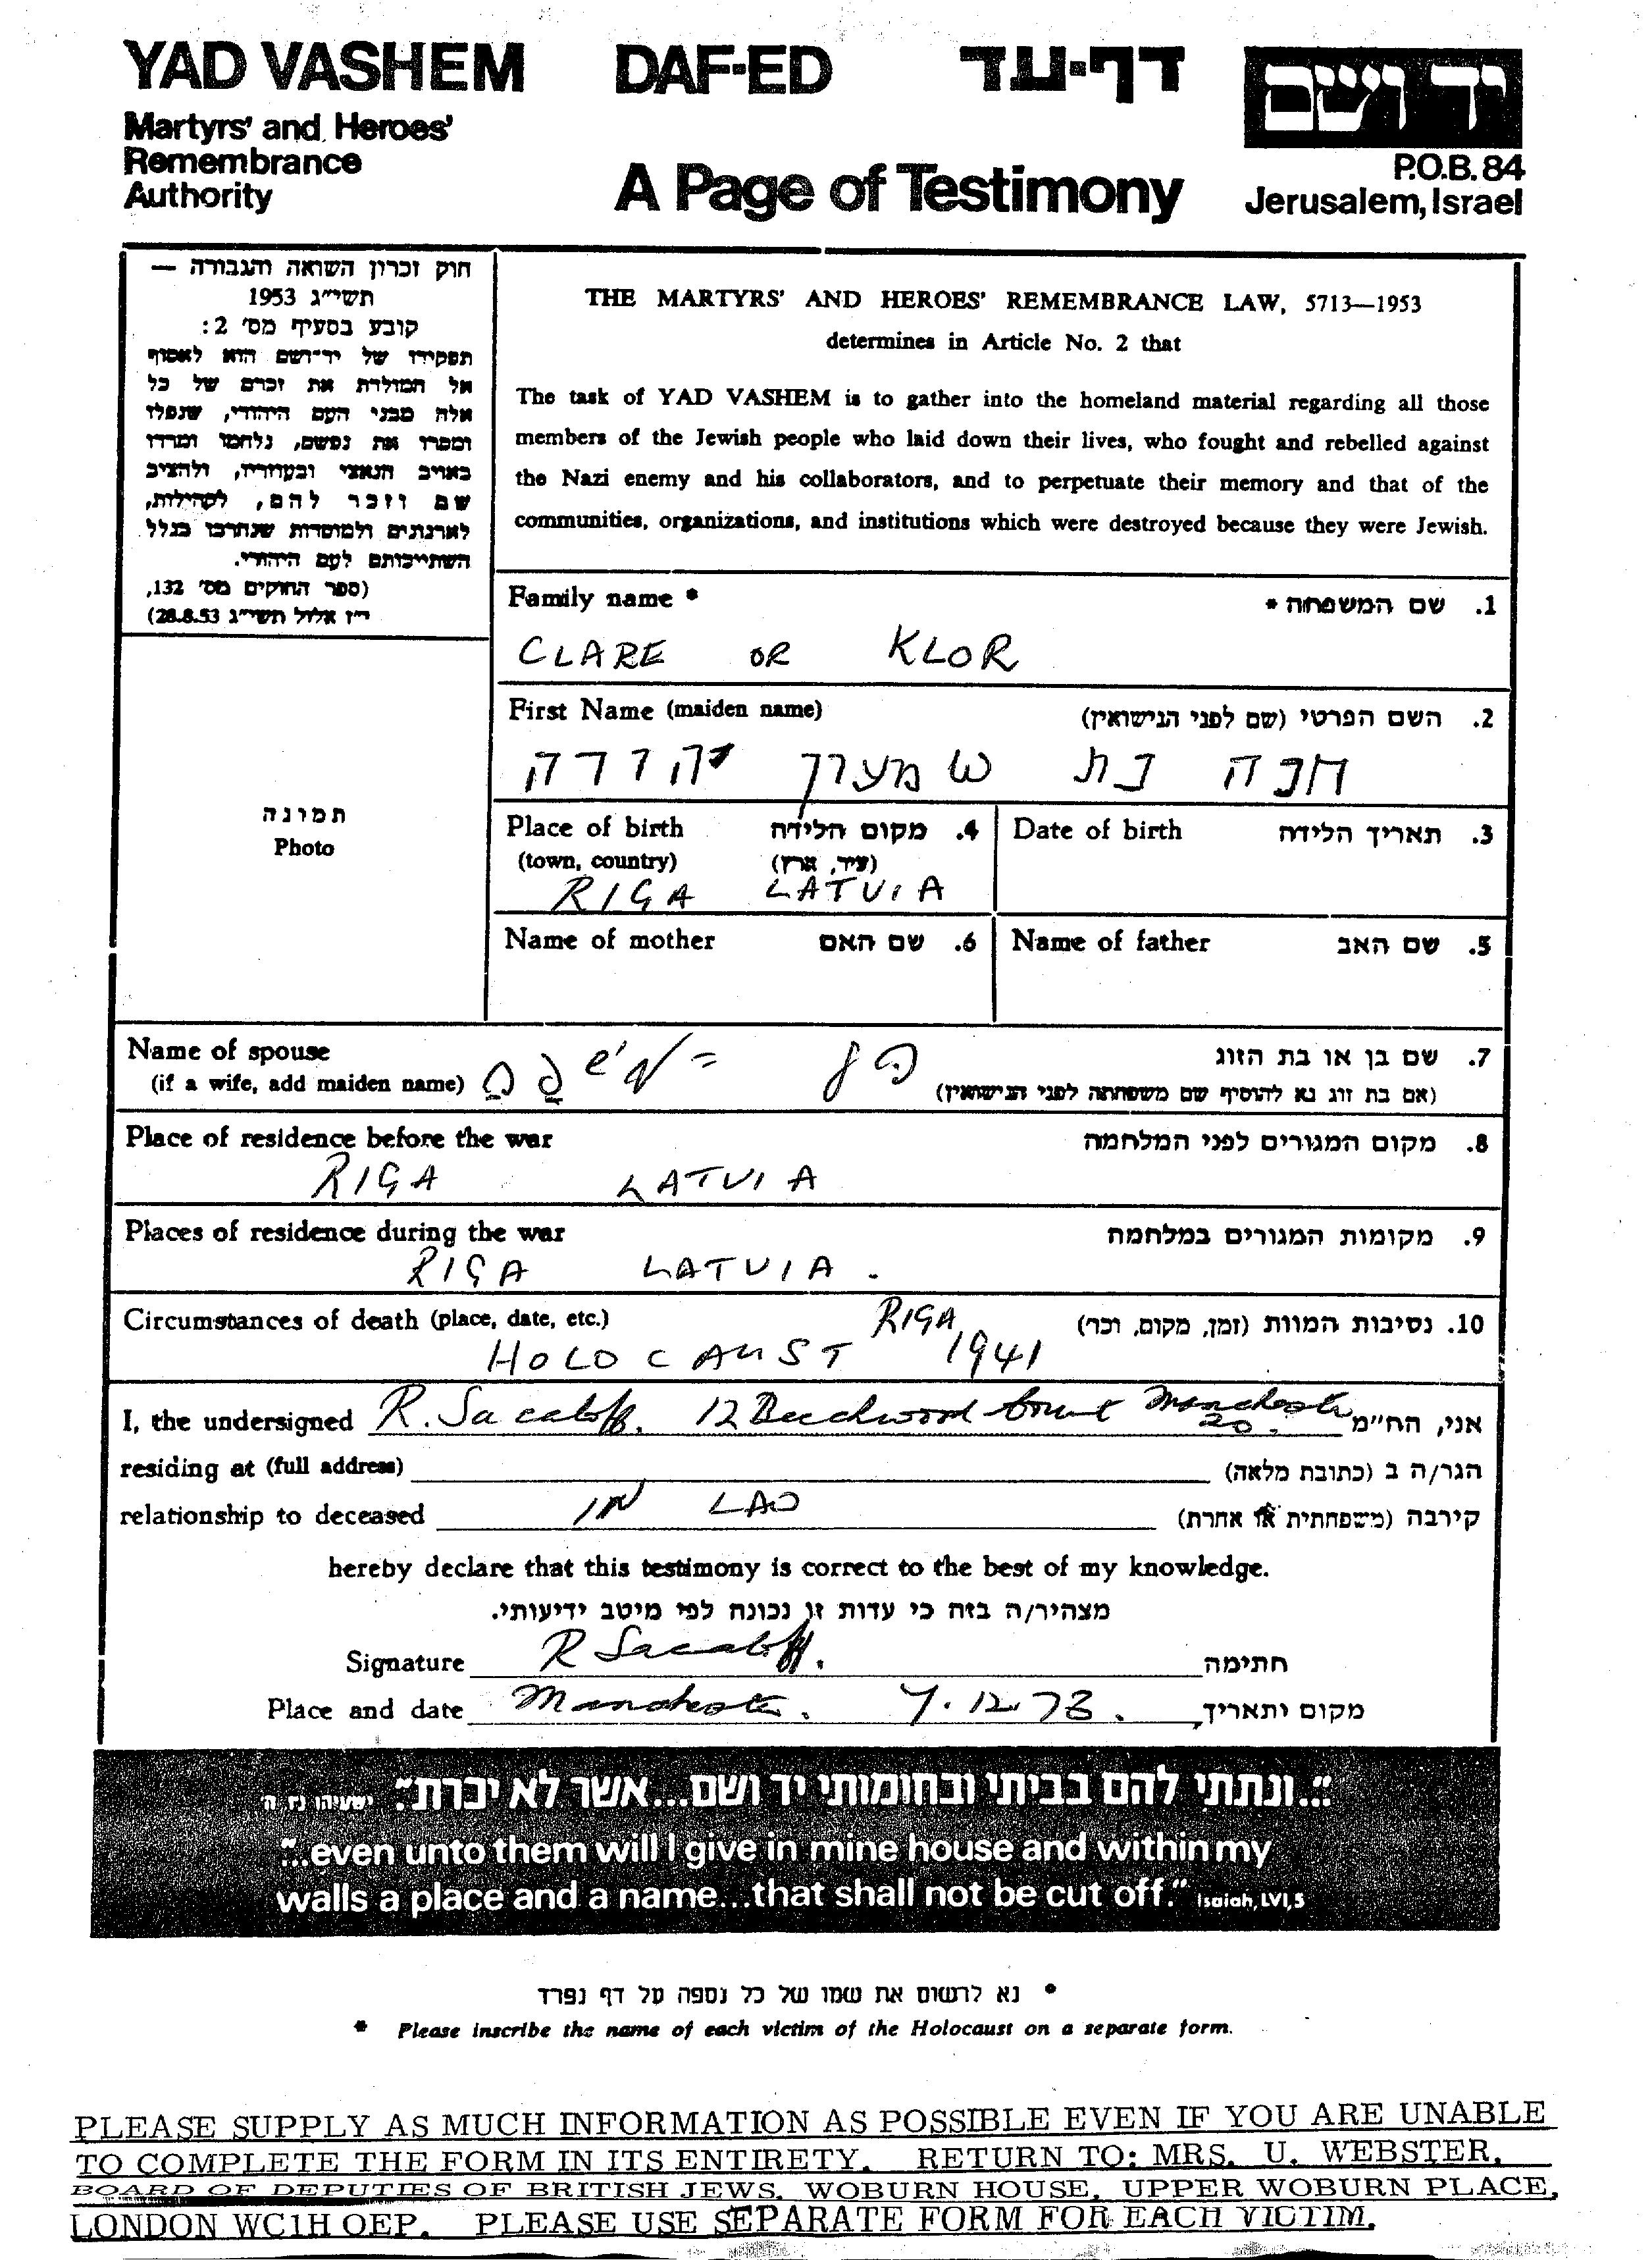 YAD VASHEM DAF-ED דף-עד יד ושם
Martyrs' and Heroes'
Remembrance
Authority
A Page of Testimony
P.O.B. 84
Jerusalem, Israel
חוק זכרון השואה והגבורה —
תשי"ג 1953
קובע בסעיף מס' 2:
תפקידו של יד־ושם הוא לאסוף
אל המולדת את זכרם של כל
אלה מבני העם היהודי, שנפלו
ומסרו את נפשם, נלחמו ומרדו
באויב הנאצי ובעוזריו, ולהציב
שם וזכר להם, לקהילות,
לארגונים ולמוסדות שנחרבו בגלל
השתייכותם לעם היהודי.
(ספר החוקים מס' 132,
י"ז אלול תשי"ג 28.8.53)
THE MARTYRS' AND HEROES' REMEMBRANCE LAW, 5713—1953
determines in Article No. 2 that
The task of YAD VASHEM is to gather into the homeland material regarding all those
members of the Jewish people who laid down their lives, who fought and rebelled against
the Nazi enemy and his collaborators, and to perpetuate their memory and that of the
communities, organizations, and institutions which were destroyed because they were Jewish.
Family name * 1. שם המשפחה *
CLARE OR KLOR
First Name (maiden name) 2. השם הפרטי (שם לפני הנישואין)
חנה בת שמערן יהודה
תמונה
Photo
Place of birth 4. מקום הלידה
(town, country) (עיר, ארץ)
RIGA LATVIA
Date of birth 3. תאריך הלידה
Name of mother 6. שם האם
Name of father 5. שם האב
Name of spouse 7. שם בן או בת הזוג
(if a wife, add maiden name) (אם בת זוג נא להוסיף שם משפחתה לפני הנישואין)
Place of residence before the war 8. מקום המגורים לפני המלחמה
RIGA LATVIA
Places of residence during the war 9. מקומות המגורים במלחמה
RIGA LATVIA.
Circumstances of death (place, date, etc.) 10. נסיבות המוות (זמן, מקום, וכו')
HOLOCAUST RIGA 1941
I, the undersigned R. Sacaloff. 12 Beechwood Court Manchester 20. אני, הח"מ
residing at (full address) הגר/ה ב (כתובת מלאה)
relationship to deceased IN LAW קירבה (משפחתית או אחרת)
hereby declare that this testimony is correct to the best of my knowledge.
מצהיר/ה בזה כי עדות זו נכונה לפי מיטב ידיעותי.
Signature R Sacaloff. חתימה
Place and date Manchester. 7.12.73. מקום ותאריך
"...ונתתי להם בביתי ובחומותי יד ושם...אשר לא יכרת". ישעיהו נו, ה
"...even unto them will I give in mine house and within my
walls a place and a name...that shall not be cut off." Isaiah, LVI,5
* נא לרשום את שמו של כל נספה על דף נפרד
* Please inscribe the name of each victim of the Holocaust on a separate form.
PLEASE SUPPLY AS MUCH INFORMATION AS POSSIBLE EVEN IF YOU ARE UNABLE
TO COMPLETE THE FORM IN ITS ENTIRETY. RETURN TO: MRS. U. WEBSTER,
BOARD OF DEPUTIES OF BRITISH JEWS, WOBURN HOUSE, UPPER WOBURN PLACE,
LONDON WC1H OEP. PLEASE USE SEPARATE FORM FOR EACH VICTIM.